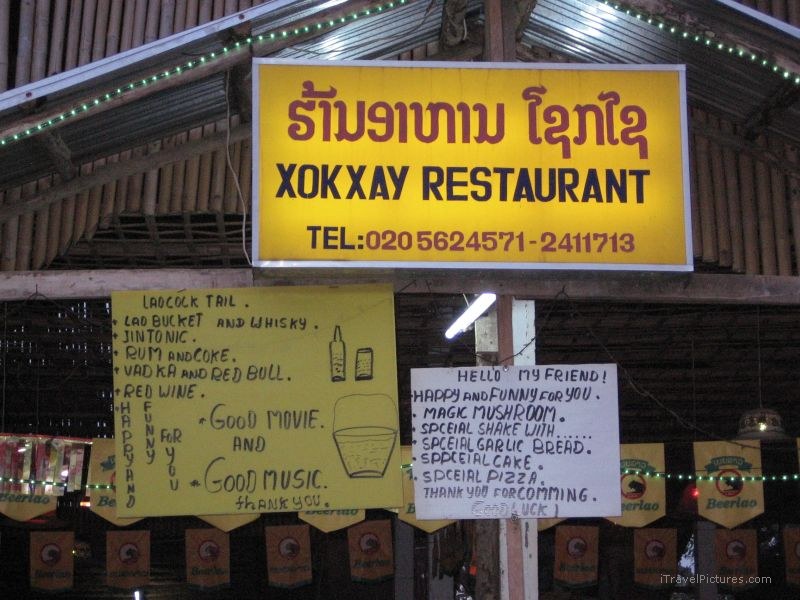 ຮ້ານອາຫານ ໂຊກໄຊ
XOKXAY RESTAURANT
TEL:020 5624571 - 2411713
LAOCOCK TAIL.
LAO BUCKET AND WHISKY.
JINTONIC.
RUM AND COKE.
VADKA AND RED BULL.
RED WINE.
HAPPY AND FUNNY FOR YOU
GOOD MOVIE.
AND
GOOD MUSIC.
THANK YOU.
HELLO MY FRIEND!
HAPPY AND FUNNY FOR YOU.
MAGIC MUSHROOM.
SPCEIAL SHAKE WITH......
SPCEIAL GARLIC BREAD.
SPPCEIAL CAKE.
SPCEIAL PIZZA.
THANK YOU FOR COMMING.
GOOD LUCK!
Beerlao
Beerlao
Beerlao
iTravelPictures.com